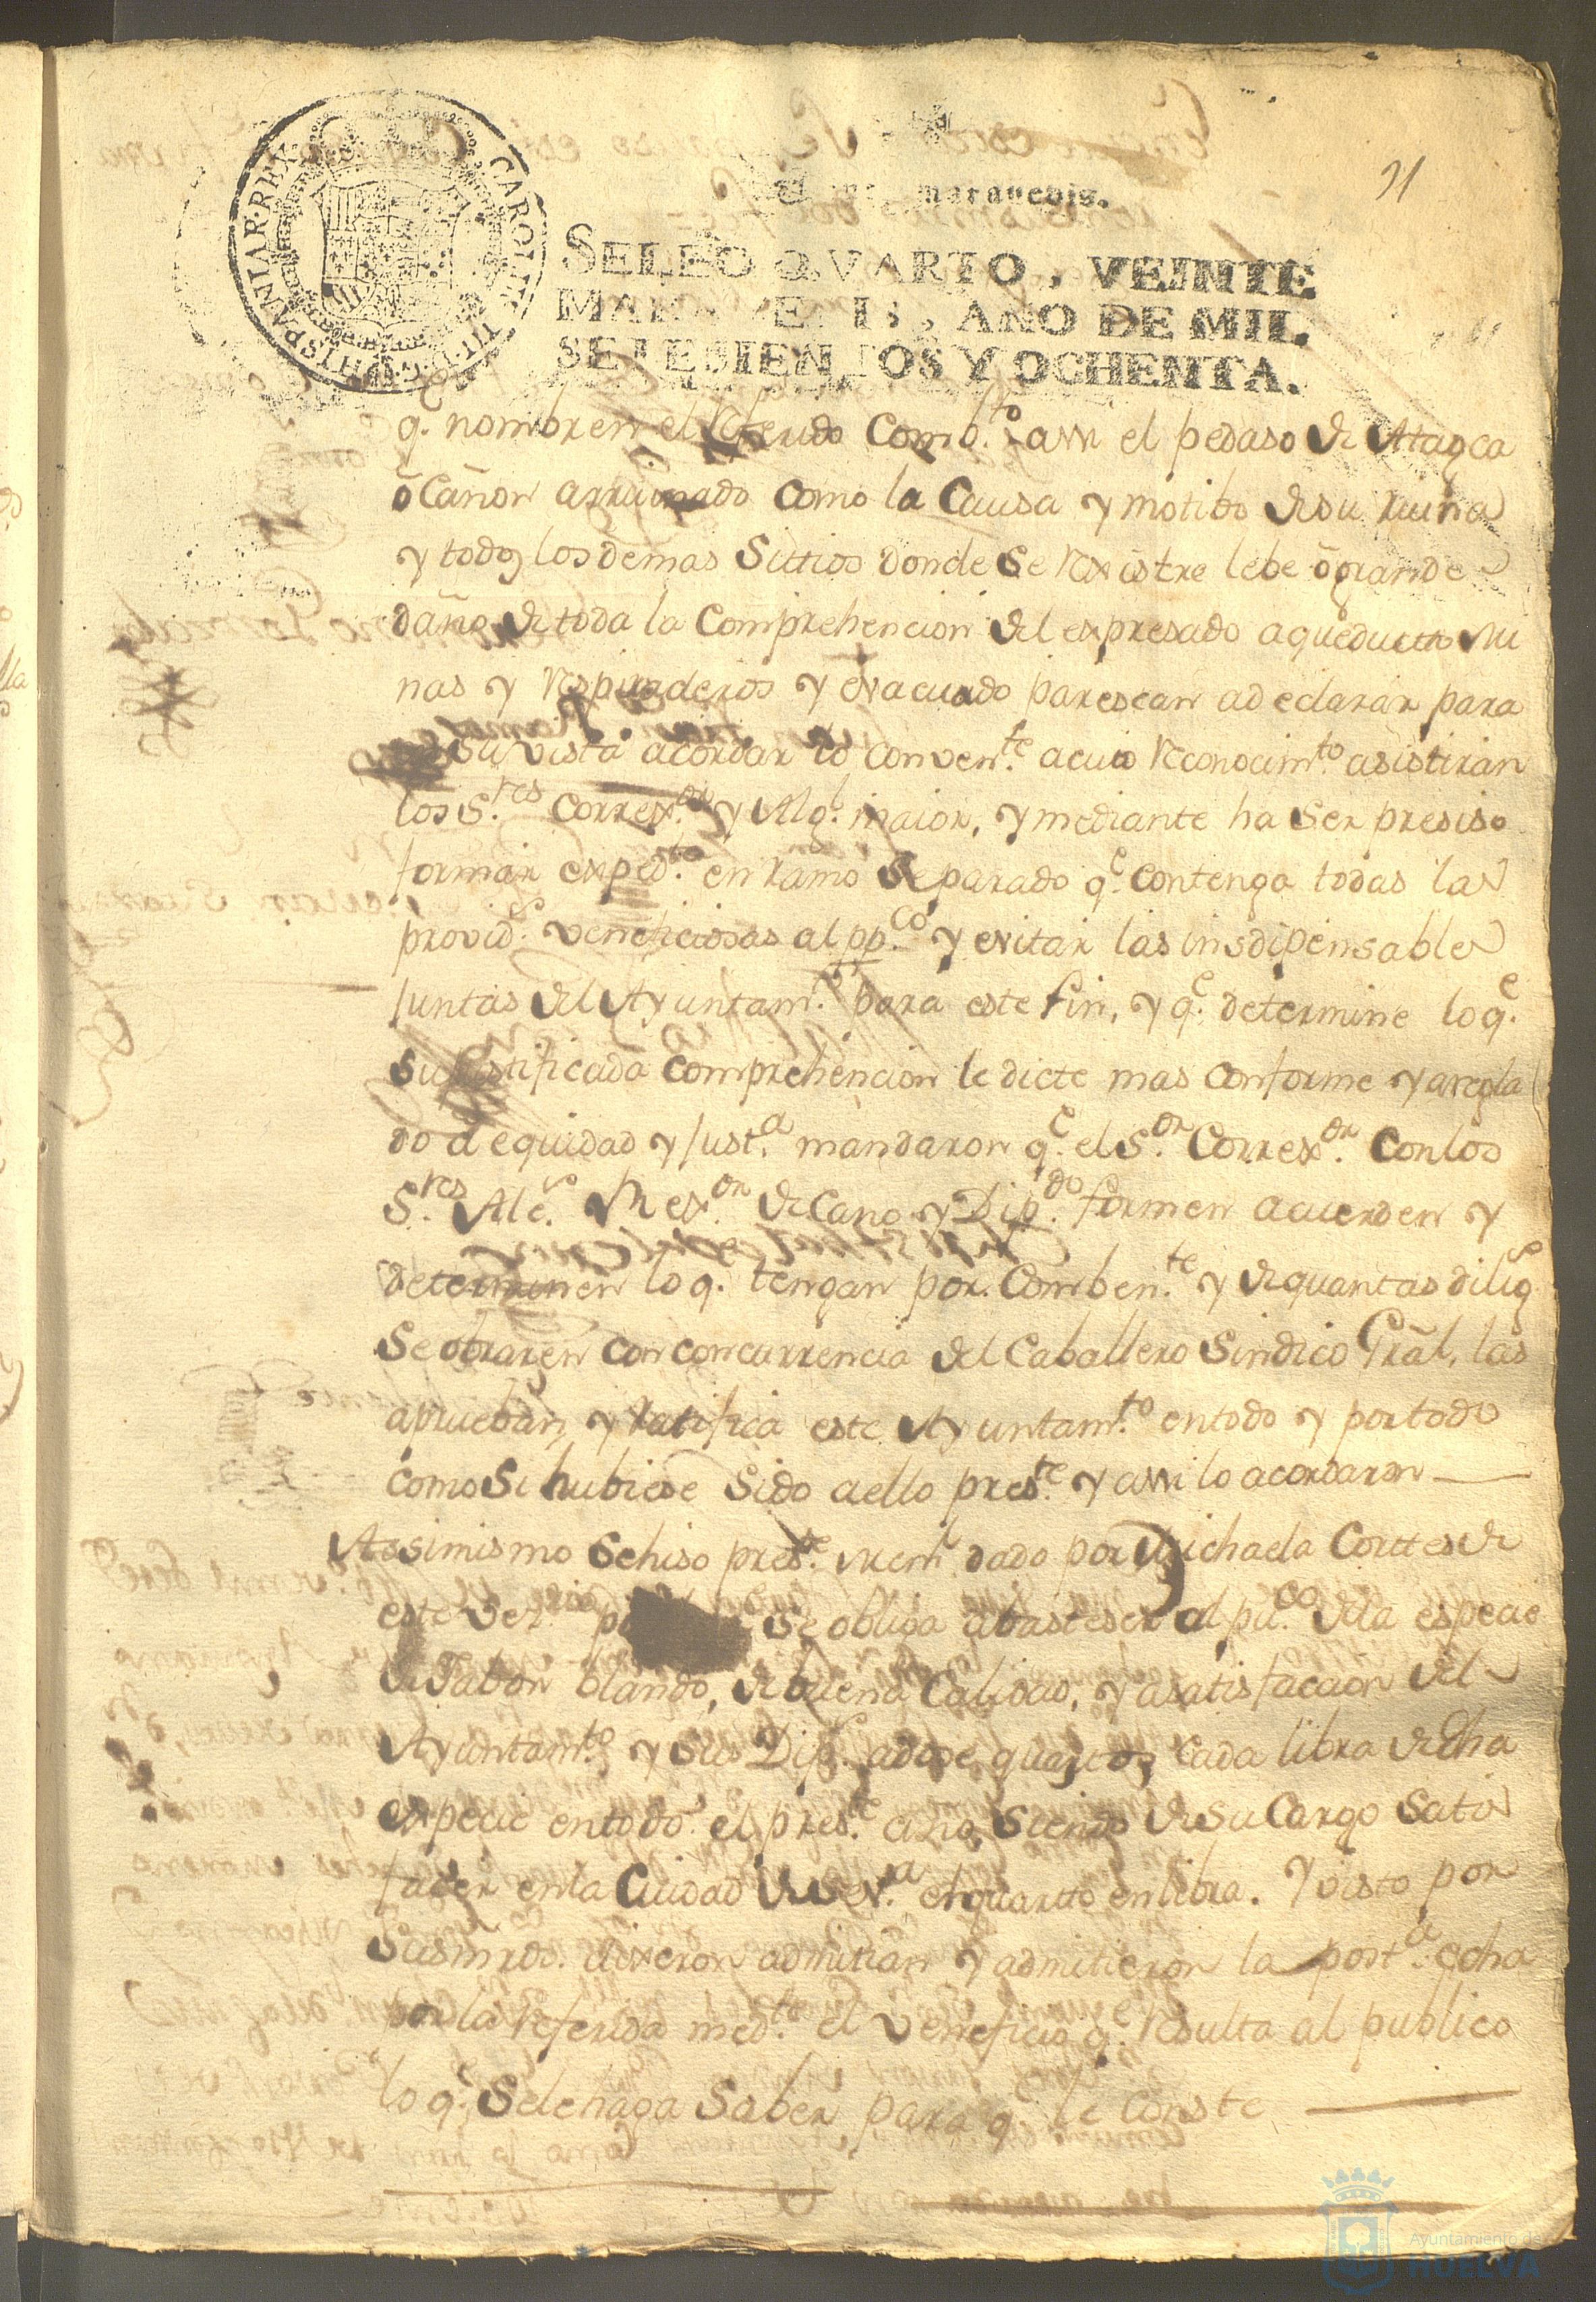 21
maravedis.
SELLO QVARTO, VEINTE
MARAVEDIS, AÑO DE MIL
SETECIENTOS Y OCHENTA.
CAROLUS III D.G. HISPANIAR. REX
q.e nombren el referido Comb.to assi el pedaso de Atagea
ô Cañon arruinado como la Causa y motibo de su ruina
y todos los demas Sittios donde se rexistre lebe ô grande
daño de toda la Comprehencion del expresado aqueducto Mi
nas y respiraderos y evacuado parescan adeclarar para
su vista acordar lo conven.te acuio reconocim.to asistiran
los S.res Correx.or y Alg.l maior, y mediante ha ser presiso
formar exped.te en ramo separado q.e contenga todas las
provid.s veneficiosas al pp.co y evitar las insdipensables
Juntas del Ayuntam.to para este fin, y q.e determine loq.e
su justificada comprehencion le dicte mas conforme y arregla
do a equidad y Just.a mandaron q.e el S.or Correx.or Conlos
S.res Alc.s Rex.or decano y Dip.do formen acuerden y
determinen lo q.e tengan por Comben.te y de quantas dilig.s
se obraren con concurrencia del Caballero Sindico Grãl, las
aprueban y ratifica este Ayuntam.to entodo y portodo
como Si hubiese Sido aello pres.te y assi lo acordaron
Assimismo Sehiso pres.te mem.l dado por Michaela Corttes de
este Vez.o se obliga abasteser al pu.co dela especie
de Jabon blando, de buena Calidad, y asatisfaccion del
Ayuntam.to y sus Dip.s adose quartos cada libra de dha
expecie entodo el pres.te año, Siendo de su Cargo Satis
facer enla Ciudad de Sev.a el quarto en libra. Y visto por
Sus mrds. dixeron admitian y admitieron la post.a echa
por la referida med.te el veneficio q.e resulta al publico
lo q.e Selehaga Saber para q.e le Conste
Ayuntamiento de
HUELVA